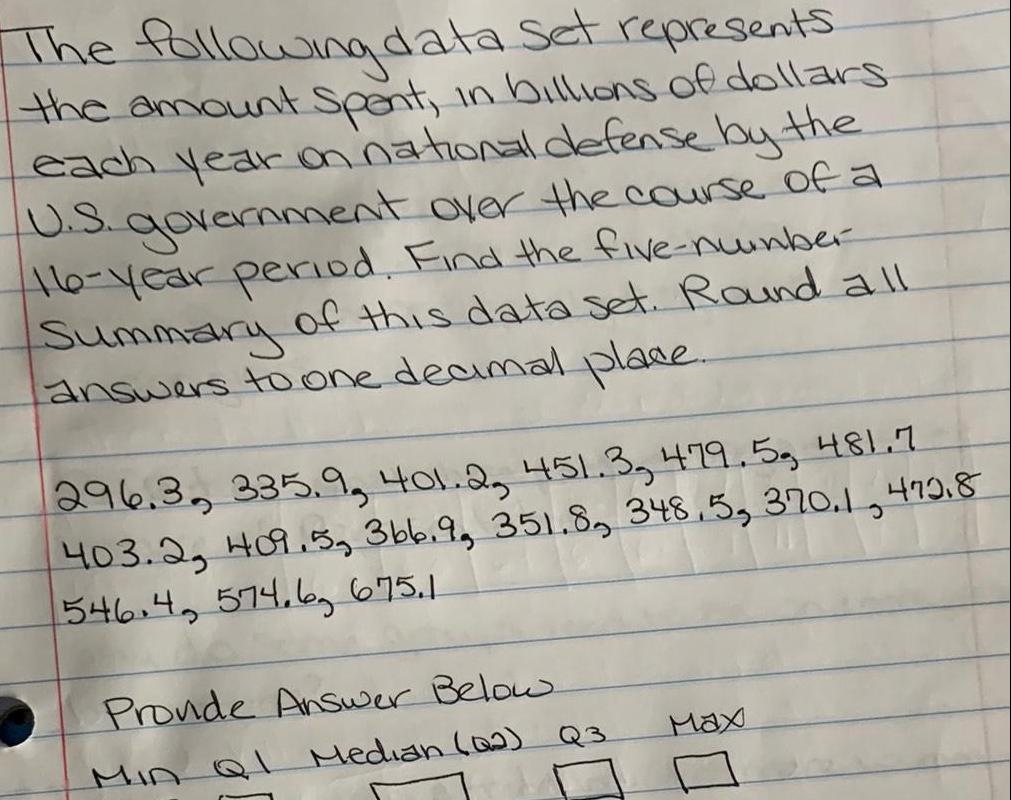 The following data set represents
the amount spent, in billions of dollars
each year on national defense by the
U.S. government over the course of a
16-year period. Find the five-number
Summary of this data set. Round all
answers to one decimal place.
296.3, 335.9, 401.2, 451.3, 479.5, 481.7
403.2, 409.5, 366.9, 351.8, 348.5, 370.1, 472.8
546.4, 574.6, 675.1
Provide Answer Below
Min Q1 Median (Q2) Q3 Max